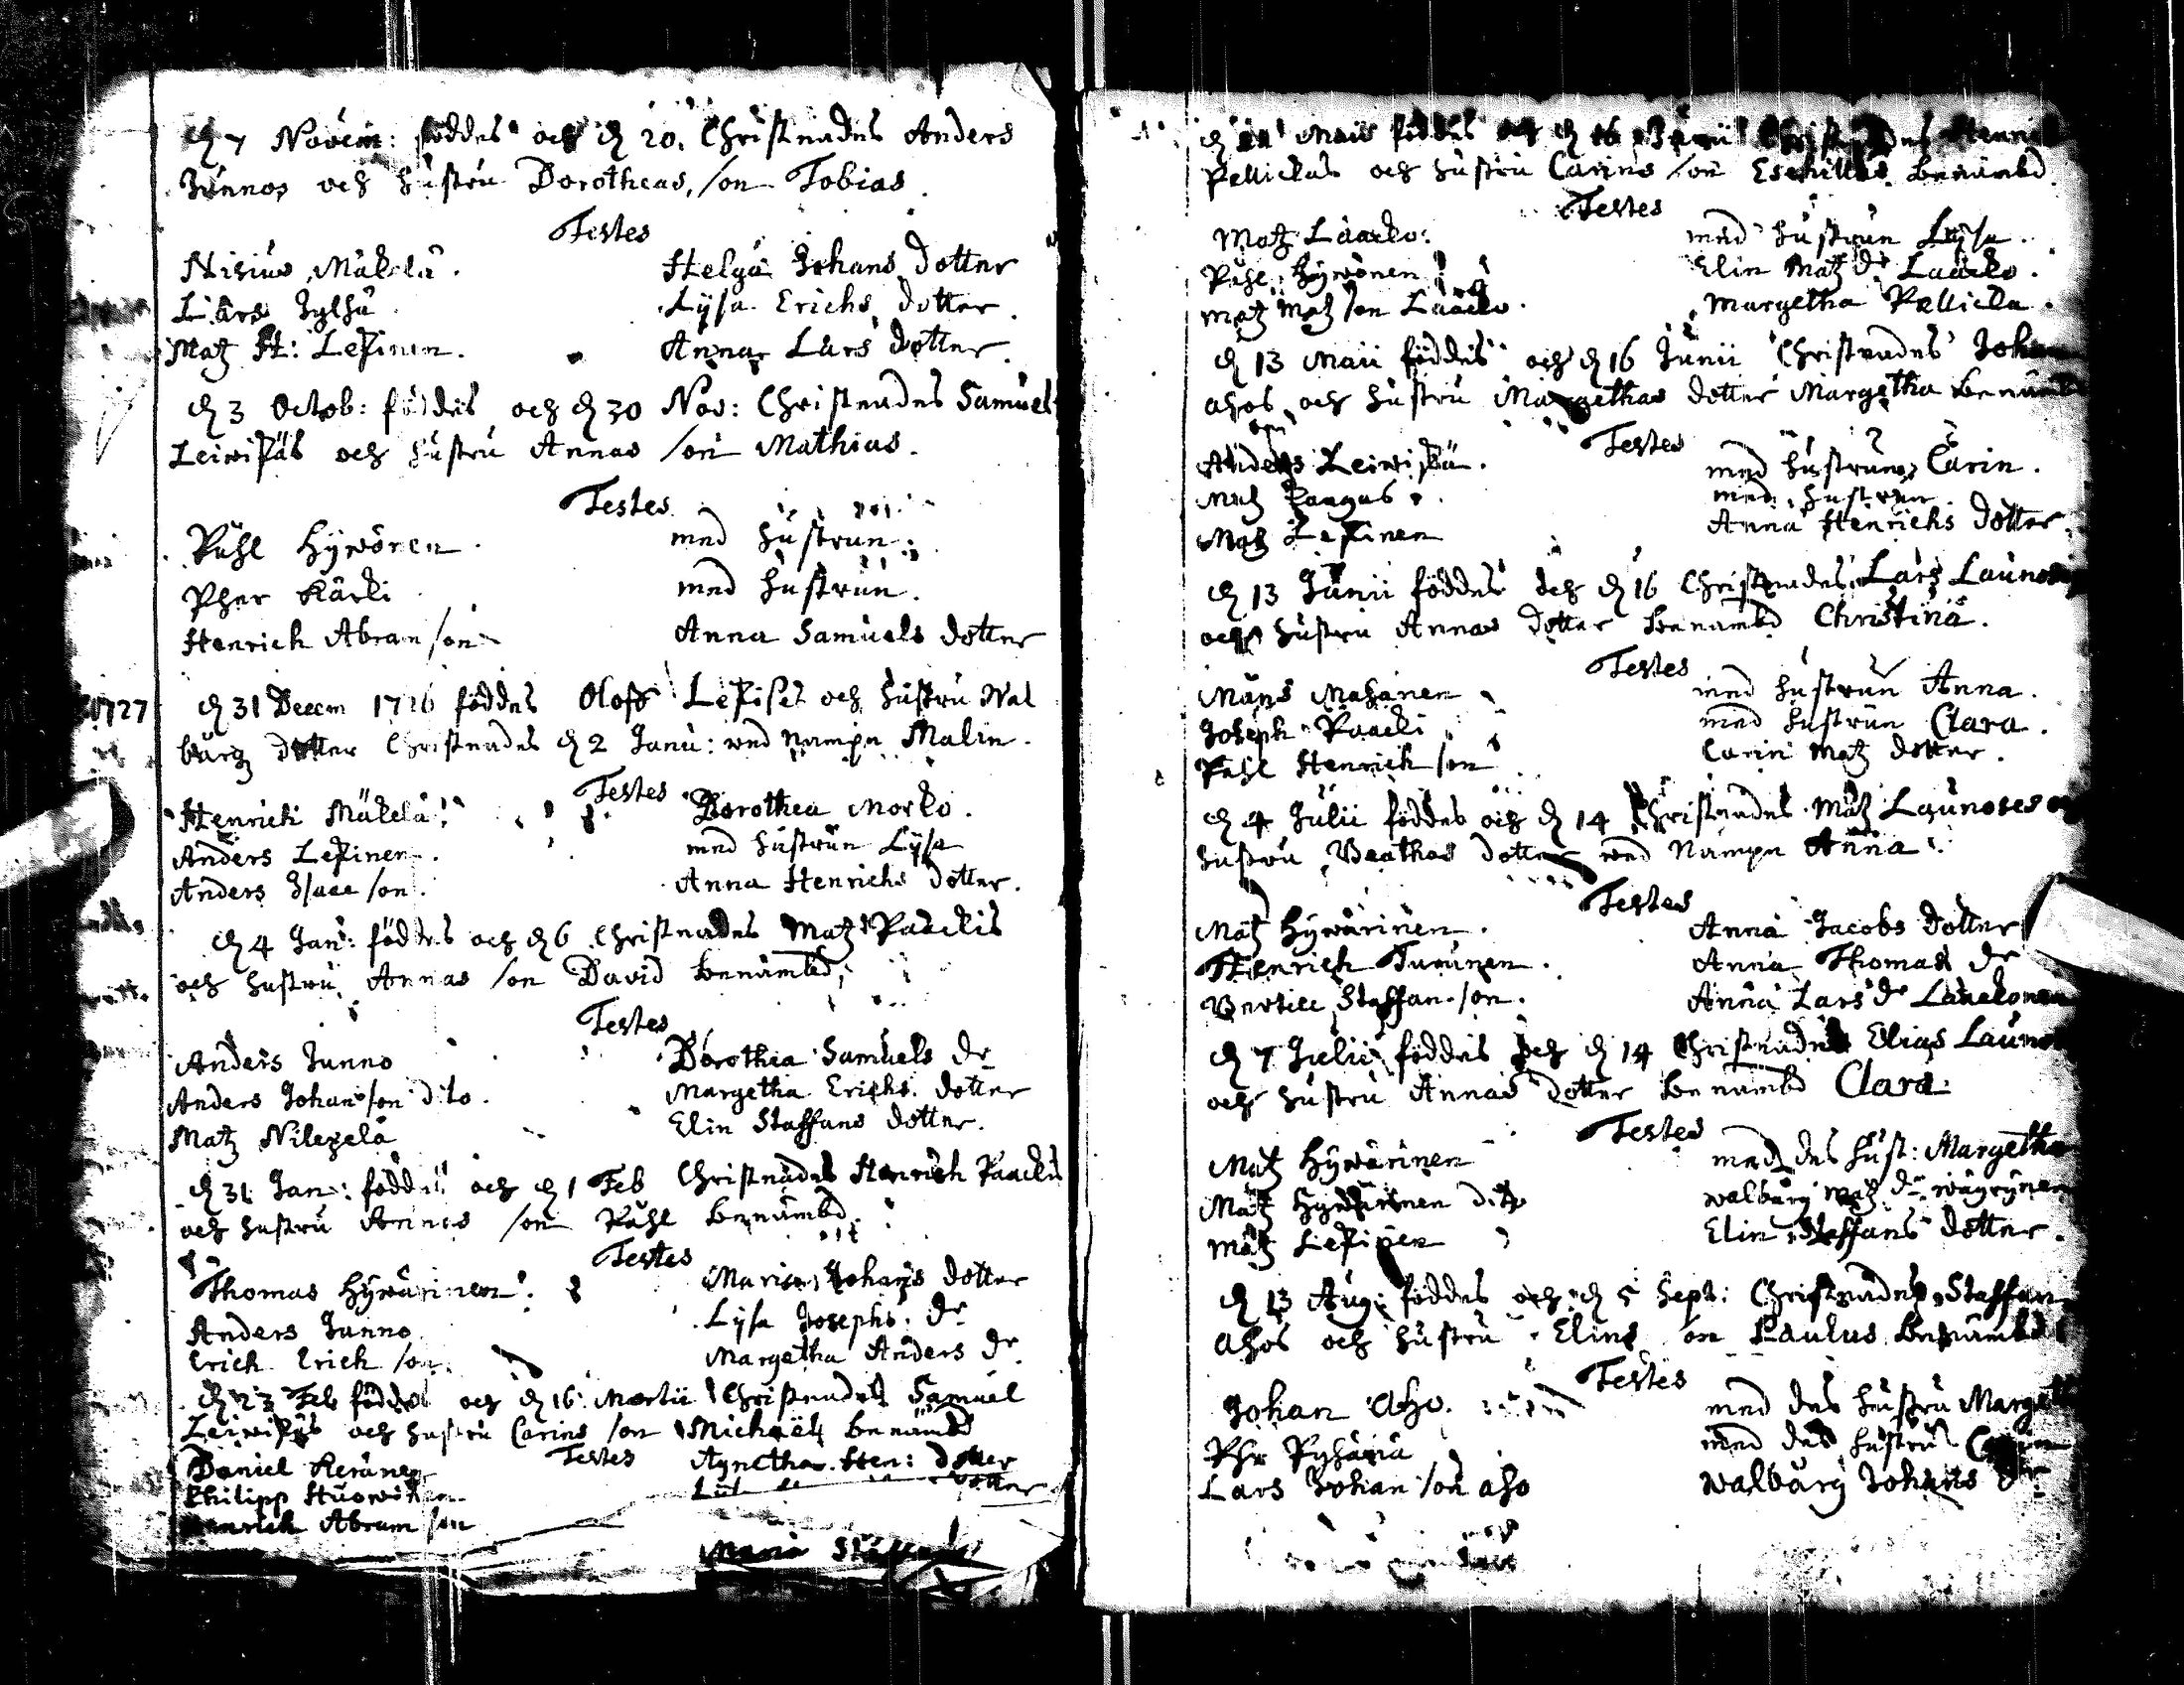 d 7 Novem: föddes och d 20. Christnades Anders
Junnos och hustru Dorotheas, son Tobias.
Testes
Mäkelä. Helga Johans dotter
Lars Lysa Erichs dotter.
Matz H: Leskinen. Anna Lars dotter.
d 3 Octob: föddes och d 30 Nov: Christnades Samuel
Leiviskäs och hustru Annas son Mathias.
Testes
Påhl Hyvönen. med hustrun.
Pher Kärki med hustrun.
Henrich Abram son Anna Samuels dotter
1727
d 31 Decem 1726 föddes Oloff och hustru Wal
burgz dotter Christnades d 2 Janu: wed nampn Malin.
Testes
Henrich Mäkelä. Dorothea Morko.
Anders Leskinen. med hustrun Lysa
Anders Isacc son. Anna Henrichs dotter.
d 4 Jan: föddes och d 6 Christnades Matz Paackis
och hustru Annas son David benämbd,
Testes
Anders Junno Dorothea Samuels dr
Anders Johan son dito. Margetha Erichs dotter
Matz Elin Staffans dotter.
d 31 Jan: föddes och d 1 Feb Christnades Henrich Paackis
och hustru Annas son Påhl benämbd.
Testes
Thomas Hyvärinen. Maria Johans dotter
Anders Junno Lysa Josephs dr
Erich Erich son. Margetha Anders dr
d 23 Feb föddes och d 16 Martii Christnades Samuel
Leiviskäs och hustru Carins son Michaël benämbd
Testes
Daniel Keränen Agnetha Hen: dotter
Philipp dotter
Henrich Abram son
Maria
d Maii föddes och d 16 Junii Christnades Henrich
Pellickas och hustru Carins son Eschillus benämbd
Testes
Matz Laacko. med hustrun Lysa.
Påhl Hyvönen Elin Matz dr Laacko.
Matz Matz son Laacko. Margetha Pellicka.
d 13 Maii föddes och d 16 Junii Christnades Johan
ahos och hustru Margethas dotter Margetha benämbd
Testes
Anders Leiviskä. med hustrun Carin.
Matz Kangas. med hustrun.
Matz Leskinen Anna Henrichs dotter.
d 13 Junii föddes och d 16 Christnades Lars
och hustru Annas dotter benämbd Christina.
Testes
Måns Mahanen med hustrun Anna.
Joseph Paacki med hustrun Clara.
Påhl Henrich son Carin Matz dotter.
d 4 Julii föddes och d 14 Christnades Matz Launoses
hustru Beathas dotter wed Nampn Anna.
Testes
Matz Hyvärinen. Anna Jacobs dotter
Henrich Turunen. Anna Thomas dr
Bertill Staffan son. Anna Lars dr
d 7 Julii föddes och d 14 Christnades Elias
och hustru Annas dotter benämbd Clara.
Testes
Matz Hyvärinen med des hust: Margetha
Matz Hyvärinen dito walburg Matz dr
Matz Leskinen Elin Steffans dotter.
d 13 Aug: föddes och d 5 Sept: Christnades Staffan
Ahos och hustru Elins son Paulus benämbd
Testes
Johan Aho. med des hustru
Phr med des hustru
Lars Johan son aho walburg Johans dr